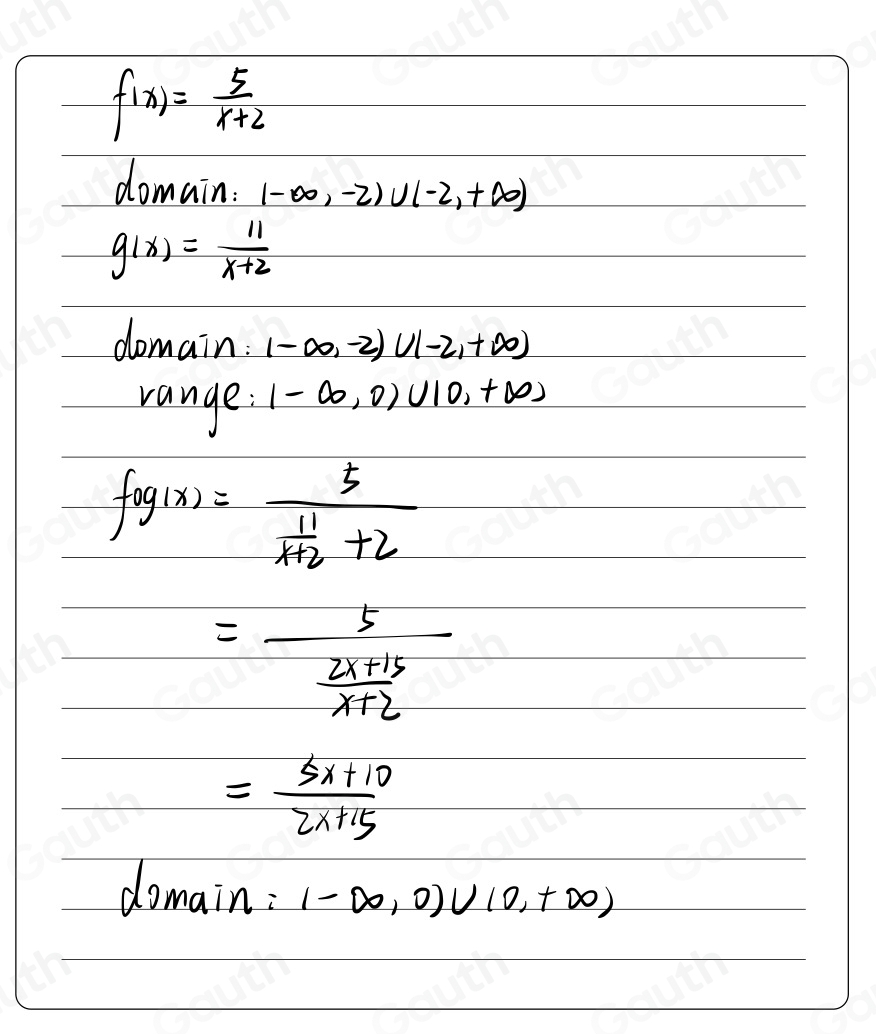 f(x) = 5/(x+2)
domain: (-∞, -2) ∪ (-2, +∞)
g(x) = 11/(x+2)
domain: (-∞, -2) ∪ (-2, +∞)
range: (-∞, 0) ∪ (0, +∞)
fog(x) = 5/(11/(x+2) + 2)
= 5/((2x+15)/(x+2))
= (5x+10)/(2x+15)
domain: (-∞, 0) ∪ (0, +∞)